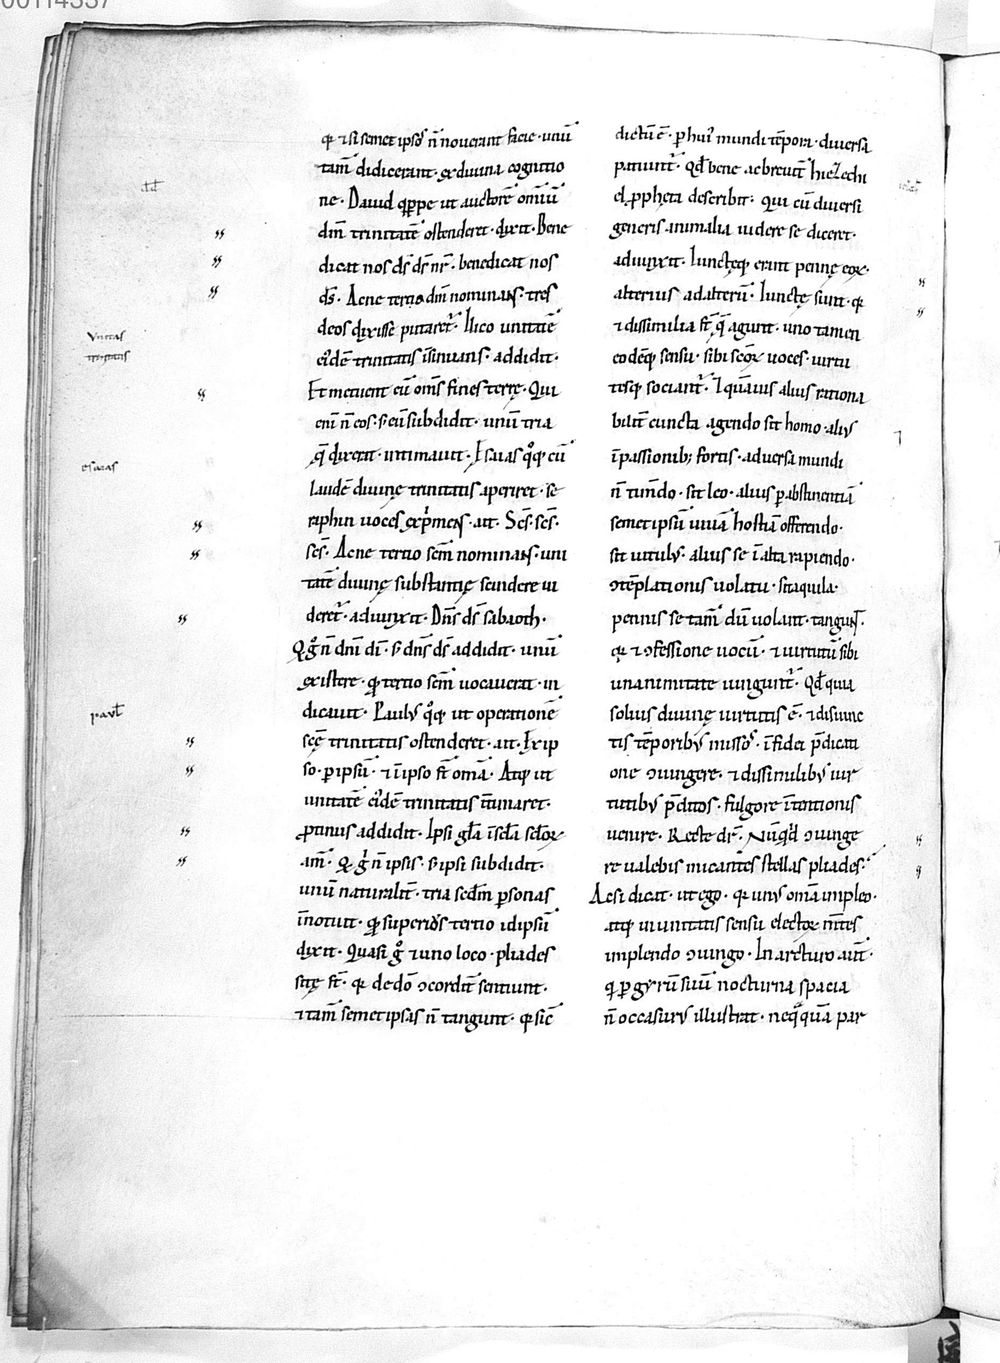 00114337
qͥ ⁊ si semet ipsoſ n̄ nouerant facie· unū
tam̄ didicerant· ex diuina cognitio
ne· Dauid q̇ppe ut auctorē omiū
dm̄ trinitatē ostenderet· dixit· Bene
dicat nos dſ̄ dſ̄ nr̄· benedicat nos
dſ̄· Ac ne tertio dm̄ nominanſ· tres
deos dixisse putaret᷑· Ilico unitatē
ei᷒dē trinitatis īsinuans· addidit·
Et metuent eū om̄s fines terrę· Qui
eni n̄ eos· s; eū subdidit· unū tria
q̄ dixerat· intimauit· Isaias qͦq; cū
laudē diuinę trinitatis aperiret· se
raphin uoces exp̍menſ· ait· Scſ̄· scſ̄·
scſ̄· Ac ne tertio scm̄ nominanſ· uni
tatē diuinę substantię scindere ui
deret᷑· adiunxit· Dn̄s dſ̄ sabaoth·
Qͥ g̊ n̄ dn̄i di· s; dn̄s dſ̄ addidit· unū
existere· qͥ tertio scm̄ uocauerat· in
dicauit· Paulꝰ qͦq; ut operationē
scę trinitatis ostenderet· ait· Ex ip
so· ꝑ ipsū· ⁊ in ipso sͭ om̄a· Atq; ut
unitatē ei᷒dē trinitatis t̄tinaret·
ꝓtinus addidit· Ipsi gl̄a ī scl̄a scl̄oꝝ
am̄· Qͥ g̊ n̄ ipsis· s; ipsi subdidit·
unū naturalit̄· tria scd̄m ꝑsonas
īnotuit· qͥ superioꝰs tertio idipsū
dixit· Quasi g̊ ⁊ uno loco· pliades
sitę sͭ· qͥ de dō ↄcordit̄ sentiunt·
⁊ tam̄ semet ipsas n̄ tangunt· qͥ sic̄
dictū ē· ꝑ hui᷒ mundi tēpora· diuersa
patiunt᷑· Qd̄ bene ac breuit̄ hiezechi
el ꝓpheta describit· Qui cū diuersi
generis animalia uidere se diceret·
adiunxit· Iunctęq; erant pennę eoꝝ·
alterius ad alterū· Iunctę sunt· qͥ
⁊ dissimilia sͭ q̄ agunt· uno tamen
eodēq; sensu· sibi sc̄oꝝ uoces· uirtu
tesq; sociant᷑· I quāuis alius rationa
bilit̄ cuncta agendo sit homo· aliꝰ
ī passionib; fortis· aduersa mundi
n̄ timdo· sit leo· alius ꝑ abstinentiā
semet ipsū uiuā hostiā offerendo·
sit uitulꝰ· alius se ī alta rapiendo·
ↄtēplationis uolatu· sit aquila·
pennis se tam̄ dū uolant· tangunt·
qͥ ⁊ ↄfessione uocū· ⁊ uirtutū sibi
unanimitate iungunt᷑· Qd̄ quia
solius diuinę uirtutis ē· ⁊ disiunc
tis tēporibꝰ missoſ· ī fidei p̄dicati
one ↄiungere· ⁊ dissimilibꝰ uir
tutibꝰ p̄ditos· fulgore ītentionis
uenire· Recte dr̄· Nūqͥd ↄiunge
re ualebis micantes stellas pliades·
Ac si dicat· ut ego· qͥ unꝰ om̄ia impleo·
atq; in unitatis sensu electoꝝ m̄tes
implendo ↄiungo· In arcturo aūt·
qͥ ꝑ gyrū suū nocturna spacia
n̄ occasurꝰ illustrat· neqͣquā par
dd
Vnitas
trinitatis
esaias
paul̄